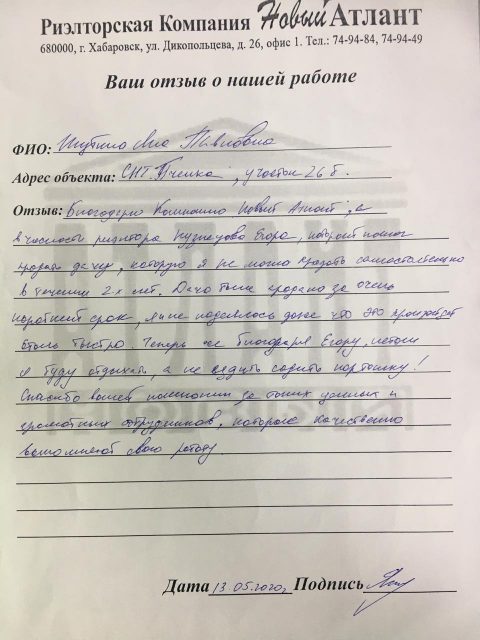 Риэлторская Компания Новый Атлант
680000, г. Хабаровск, ул. Дикопольцева, д. 26, офис 1. Тел.: 74-94-84, 74-94-49
Ваш отзыв о нашей работе
ФИО: Павловна
Адрес объекта: СНТ "Пчелка", участок 26 б.
Отзыв: Благодарю Компанию "Новый Атлант", а
в частности риэлтора Кузнецова Егора, который помог
продать дачу, которую я не могла продать самостоятельно
в течении 2-х лет. Дача была продана за очень
короткий срок, я и не надеялась даже что это произойдет
столь быстро. Теперь же благодаря Егору, летом
я буду отдыхать, а не ездить садить картошку!
Спасибо вашей компании за таких ценных и
грамотных сотрудников, которые качественно
выполняют свою работу.
Дата 13.05.2020, Подпись